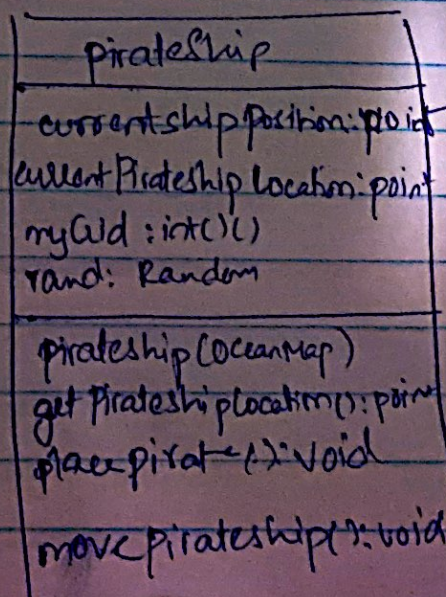 pirateShip
currentshipPosition: point
currentPirateship Location: point
myGrid : int()()
rand: Random
pirateship(OceanMap)
getPirateshipLocation(): point
placepirate(): void
movepirateship(): void